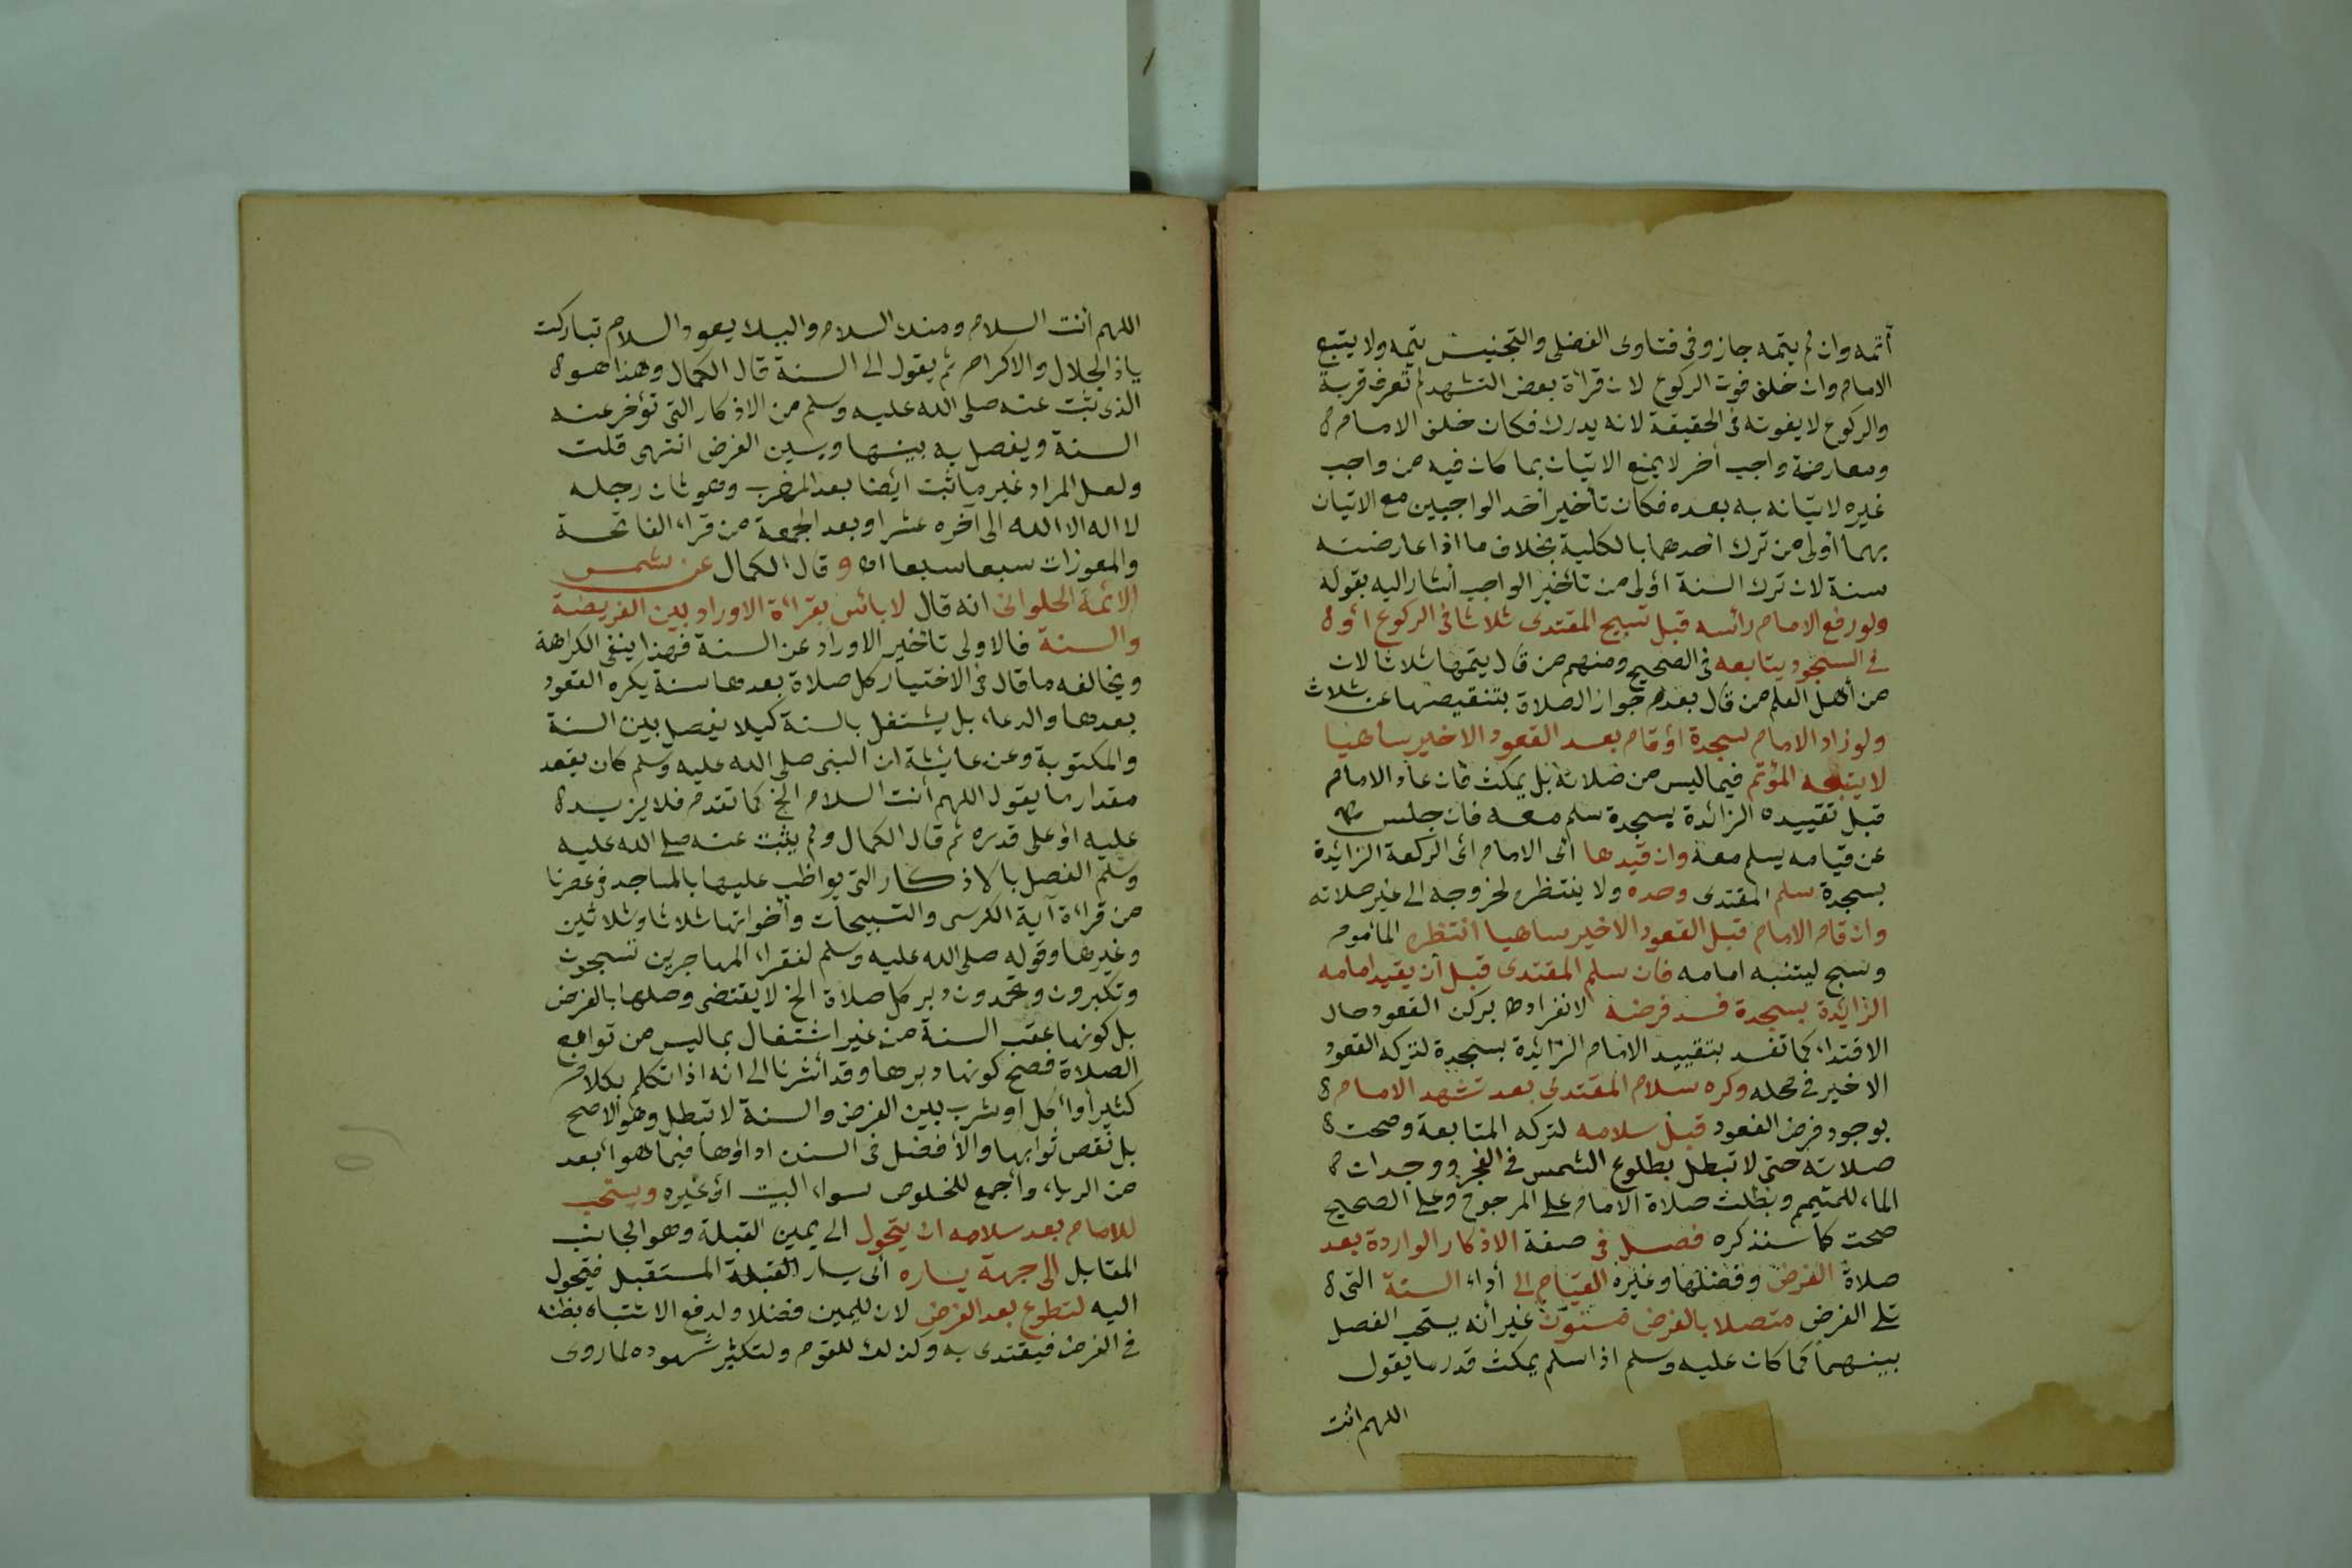 أتمه وان لم يتمه جاز وفى فتاوى الفضلى والتجنيس يتمه ولا يتبع
الامام وان خاف فوت الركوع لان قرأة بعض التشهد لم تعرف قربة
والركوع لا يفوته فى الحقيقة لانه يدرك فكان خلف الامام
ومعارضة واجب أخر لا يمنع الاتيان بما كان فيه من واجب
غيره لاتيانه به بعده فكان تأخير أحد الواجبين مع الاتيان
بهما أولى من ترك احدهما بالكلية بخلاف ما اذا عارضته
سنة لان ترك السنة أولى من تأخير الواجب أشار اليه بقوله
ولو رفع الامام رأسه قبل تسبيح المقتدى ثلاثا فى الركوع أو
فى السجود يتابعه فى الصحيح ومنهم من قال يتمها ثلاثا لان
من أهل العلم من قال بعدم جواز الصلاة بتنقيصها عن ثلاث
ولو زاد الامام سجدة أو قام بعد القعود الاخير ساهيا
لا يتبعه المؤتم فيما ليس من صلاته بل يمكث فان عاد الامام
قبل تقييده الزائدة بسجدة سلم معه فان جلس
عن قيامه يسلم معه وان قيدها أى الامام أى الركعة الزائدة
بسجدة سلم المقتدى وحده ولا ينتظره لخروجه الى غير صلاته
وان قام الامام قبل القعود الاخير ساهيا انتظره المأموم
وسبح ليتنبه امامه فان سلم المقتدى قبل أن يقيد امامه
الزائدة بسجدة فسد فرضه لانفراده بركن القعود حال
الاقتداء كما تفسد بتقييد الامام الزائدة بسجدة لتركه القعود
الاخير فى محله وكره سلام المقتدى بعد تشهد الامام
بوجود فرض القعود قبل سلامه لتركه المتابعة وصحت
صلاته حتى لا تبطل بطلوع الشمس فى الفجر ووجدان
الماء للمتيمم وبطلت صلاة الامام على المرجوح وعلى الصحيح
صحت كما سنذكره فصل فى صفة الاذكار الواردة بعد
صلاة الفرض وفضلها وغيره القيام الى أداء السنة التى
تلى الفرض متصلا بالفرض مسنون غير أنه يستحب الفصل
بينهما كما كان عليه وسلم اذا سلم يمكث قدر ما يقول
اللهم انت
اللهم أنت السلام ومنك السلام واليك يعود السلام تباركت
ياذا الجلال والاكرام ثم يقول الى السنة قال الكمال وهذا هو
الذى ثبت عنه صلى الله عليه وسلم من الاذكار التى تؤخر عنه
السنة ويفصل به بينها وبين الفرض انتهى قلت
ولعل المراد غير ما ثبت أيضا بعد المغرب وهو ثان رجله
لا اله الا الله الى آخره عشرا وبعد الجمعة من قراء الفاتحة
والمعوذات سبعا سبعا اه وقال الكمال عن شمس
الائمة الحلوانى انه قال لا بأس بقرأة الاوراد بين الفريضة
والسنة فالاولى تأخير الاوراد عن السنة فهذا ينفى الكراهة
ويخالفه ما قال فى الاختيار كل صلاة بعدها سنة يكره القعود
بعدها والدعاء بل يشتغل بالسنة كيلا يفصل بين السنة
والمكتوبة وعن عايشة ان النبى صلى الله عليه وسلم كان يقعد
مقدار ما يقول اللهم أنت السلام الخ كما تقدم فلا يزيد
عليه أو على قدره ثم قال الكمال ولم يثبت عنه صلى الله عليه
وسلم الفصل بالاذكار التى يواظب عليها بالمساجد فى عصرنا
من قرأة آية الكرسى والتسبيحات وأخواتها ثلاثا وثلاثين
وغيرها وقوله صلى الله عليه وسلم لفقراء المهاجرين تسبحون
وتكبرون وتحمدون دبر كل صلاة الخ لا يقتضى وصلها بالفرض
بل كونها عقب السنة من غير اشتغال بما ليس من توابع
الصلاة فصح كونها دبرها وقد أشرنا الى انه اذا تكلم بكلام
كثير أو أكل أو شرب بين الفرض والسنة لا تبطل وهو الاصح
بل نقص ثوابها والأفضل فى السنن اداؤها فيما هو أبعد
من الرياء وأجمع للخلوص سواء البيت أو غيره ويستحب
للامام بعد سلامه ان يتحول الى يمين القبلة وهو الجانب
المقابل الى جهة يساره أى يسار القبلة المستقبل فيتحول
اليه لتطوع بعد الفرض لان لليمين فضلا ولدفع الاشتباه بظنه
فى الفرض فيقتدى به وكذلك للقوم ولتكثير شهوده لما روى